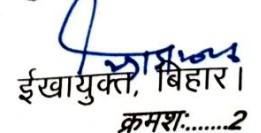 ईखायुक्त, बिहार।
क्रमशः.......2